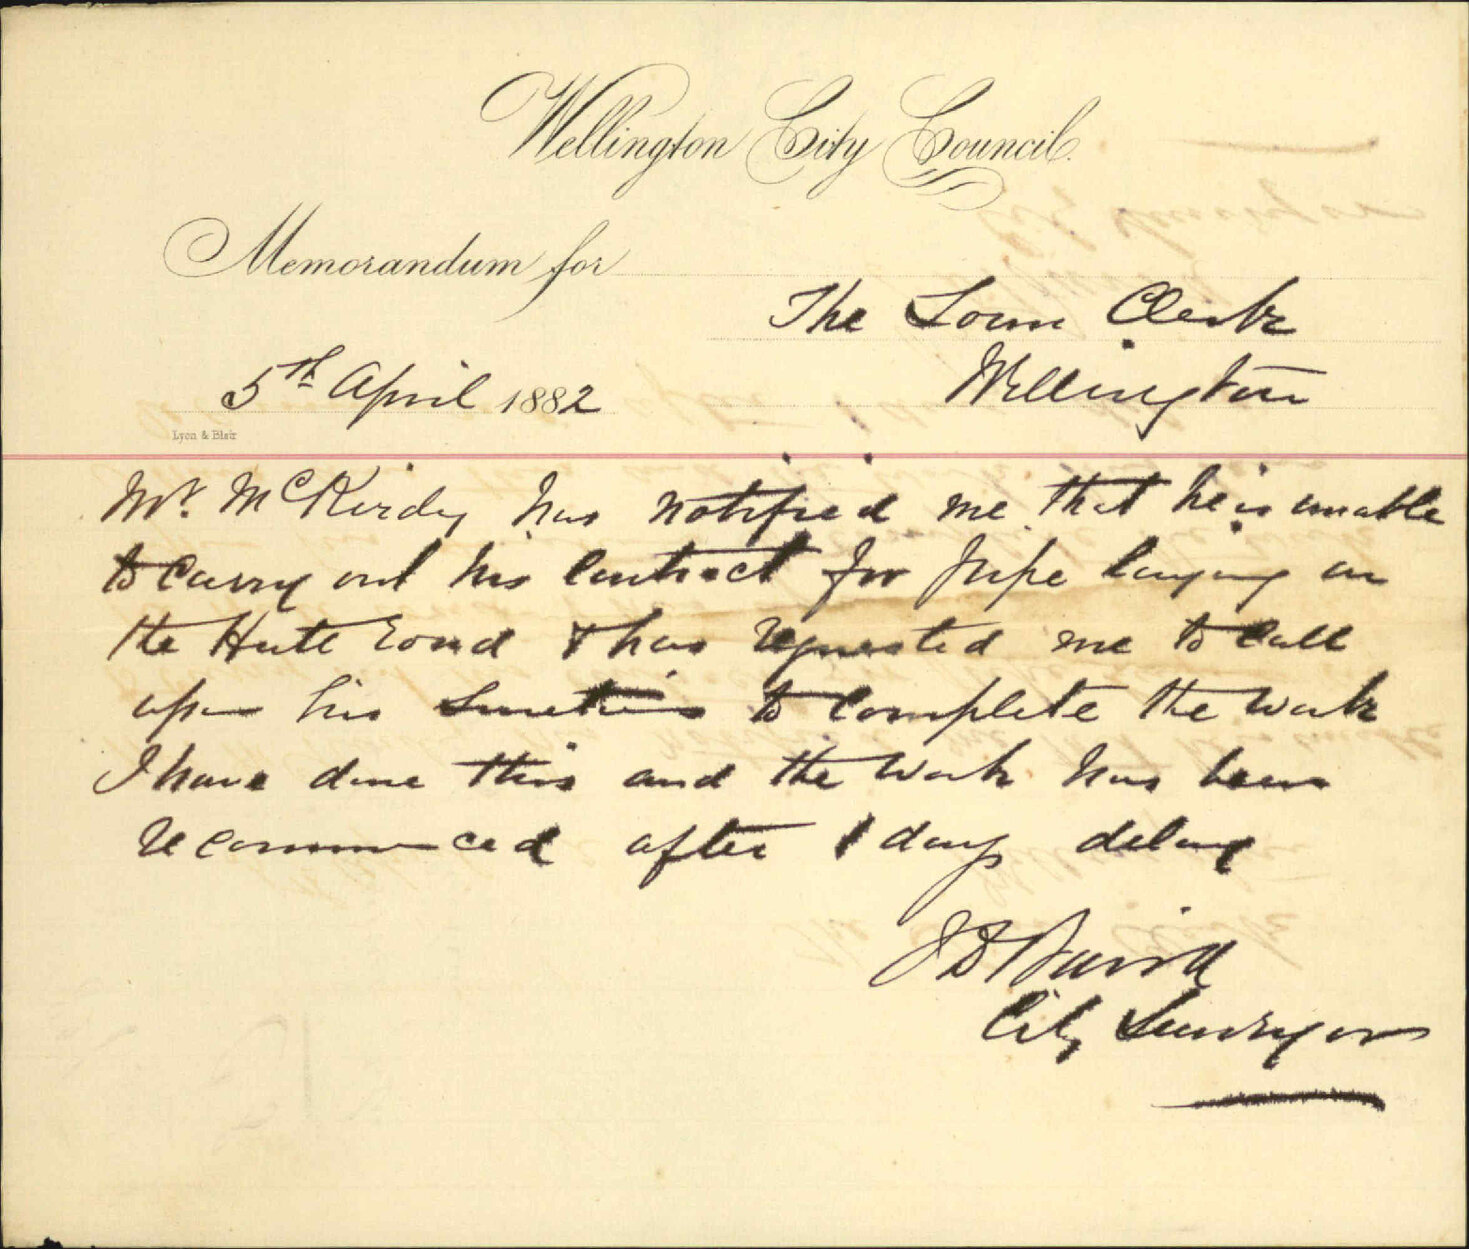 Wellington City Council.
Memorandum for
The Town Clerk
Wellington
5th April 1882
Lyon & Blair
Mr. McKirdy has notified me that he is unable
to carry out his Contract for Pipe laying on
the Hutt road & has requested me to call
upon his Sureties to complete the work
I have done this and the work has been
recommenced after 1 days delay
J D Baird
City Surveyor